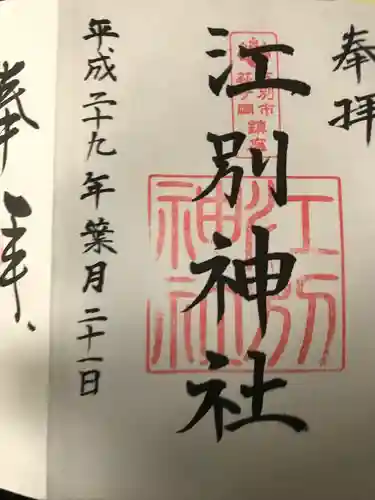 奉拝
江別神社
平成二十九年葉月二十一日
江別
神社
江別市
萩ヶ岡
鎮座
奉拝、